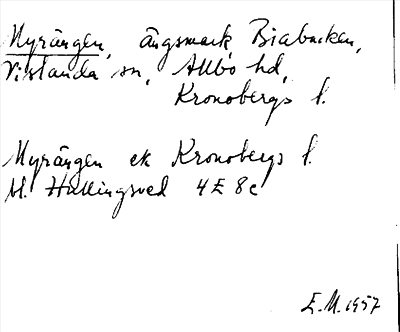 Myrängen, ängsmark, Biabacken,
Vislanda sn, Allbo hd,
Kronobergs l.
Myrängen ek Kronobergs l.
bl. Hullingsved 4 E 8 c
E.M. 1957